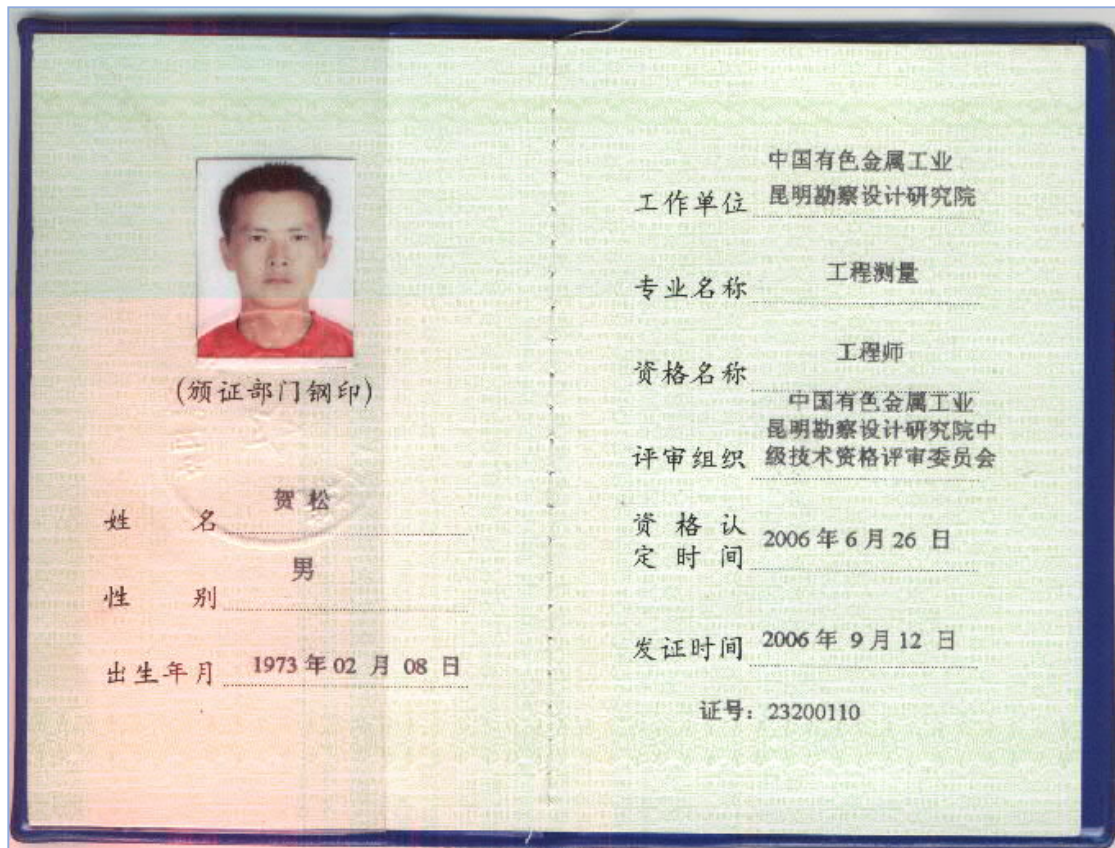 (颁证部门钢印)
姓 名 贺 松
性 别 男
出生年月 1973 年 02 月 08 日
中国有色金属工业
工作单位 昆明勘察设计研究院
专业名称 工程测量
资格名称 工程师
中国有色金属工业
昆明勘察设计研究院中
评审组织 级技术资格评审委员会
资 格 认
定 时 间 2006 年 6 月 26 日
发证时间 2006 年 9 月 12 日
证号：23200110